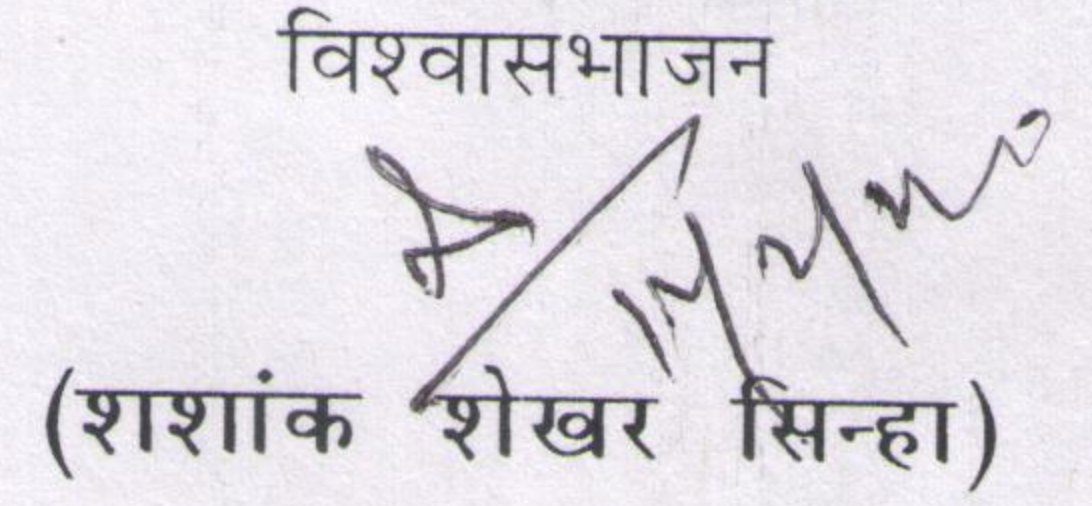 विश्वासभाजन
(शशांक शेखर सिन्हा)